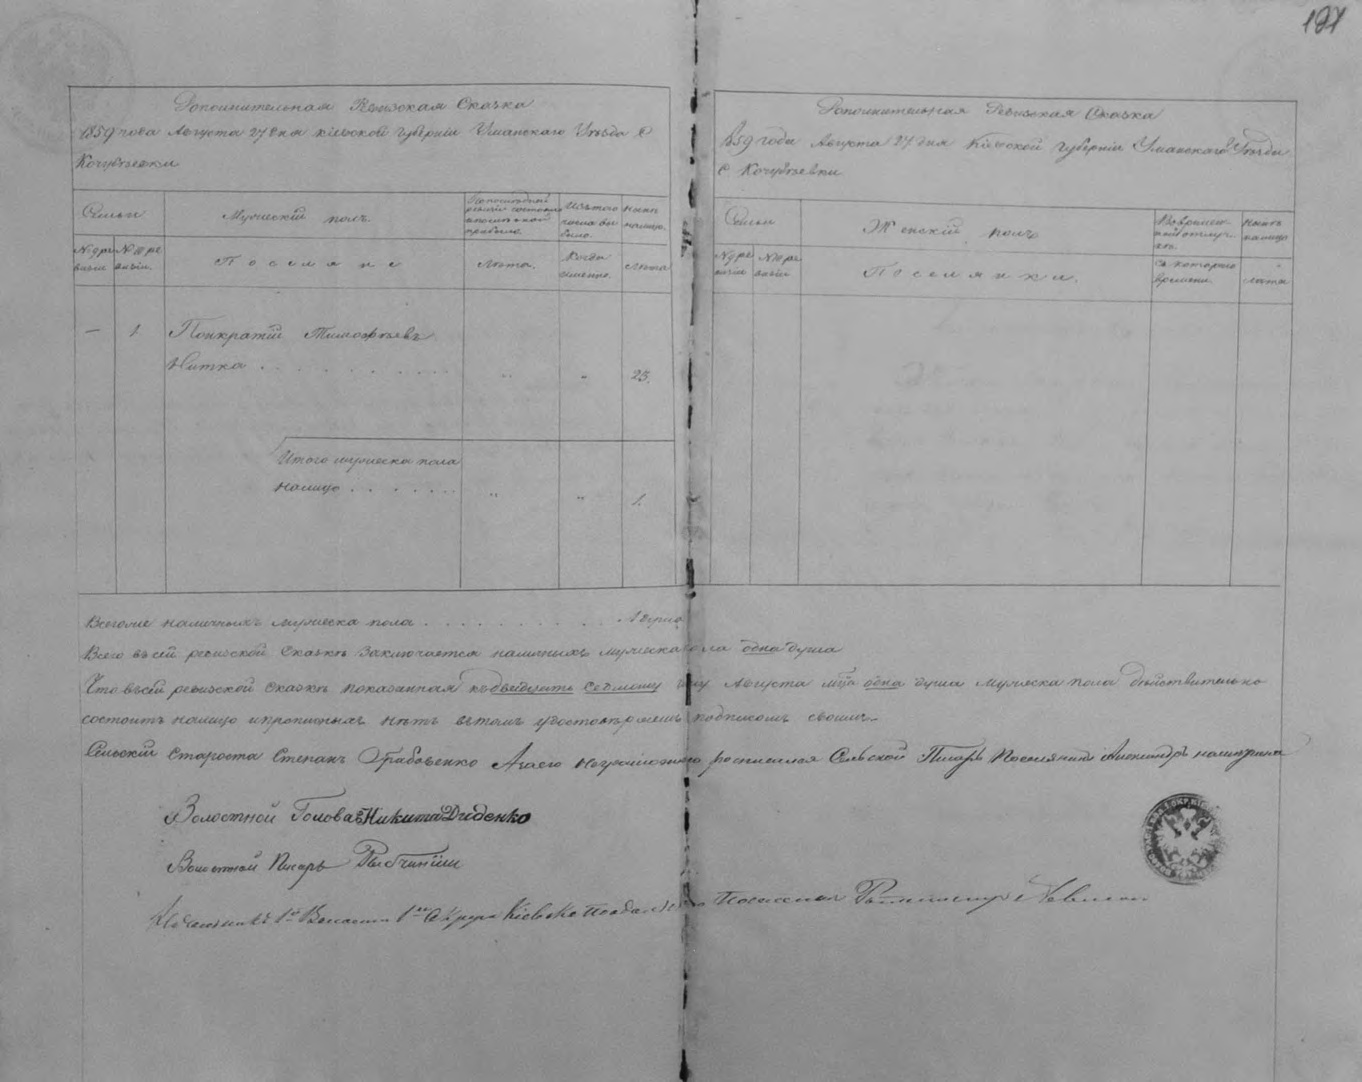 127
Дополнительная Ревизская Сказка
1859 года Августа 27 дня Кіевской Губерніи Уманскаго Уѣзда С
Кочубѣевки
Семьи
Мужескій полъ.
Изъ того числа выбыло
Нынѣ налицо
№ 9 ревизіи
№ 10 ревизіи
Поселяне
Лѣта.
Когда именно.
Лѣта
— 1. Понкратій Тимофѣевъ
Нитка . . . . . . . . . „ „ 25.
Итого мужеска пола
налицо . . . . . . „ „ 1.
Дополнительная Ревизская Сказка
1859 года Августа 27 дня Кіевской Губерніи Уманскаго Уѣзда
С Кочубѣевки
Семьи
Женскій полъ
Во временной отлучкѣ
Нынѣ налицо
№ 9 ревизіи
№ 10 ревизіи
Поселянки.
Съ котораго времени
Лѣта
Всего же наличныхъ мужеска пола . . . . . . . . . . 1 душа
Всего въ сей ревизской Сказкѣ Заключается наличныхъ мужеска пола одна душа
Что въ сей ревизской Сказкѣ показанная къ двадцать седьмому Августа одна душа мужеска пола дѣйствительно
состоитъ налицо и прописныхъ нѣтъ въ томъ удостовѣряемъ подписомъ своимъ
Сельскій Староста Степанъ Грабовенко А за его неграмотного росписался Сельской Писарь Поселянинъ Александръ
Волостной Голова Никита Диденко
Волостной Писарь
1й Волости 1го Округа Кіевско Подольскаго